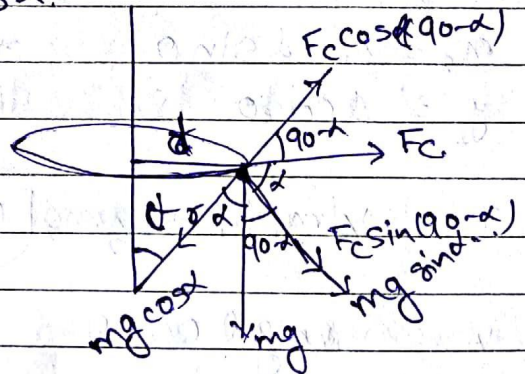 F_c cos(90-α)
90-α
F_c
d
α
r
α
90-α
F_c sin(90-α)
mg sinα
mg cosα
mg